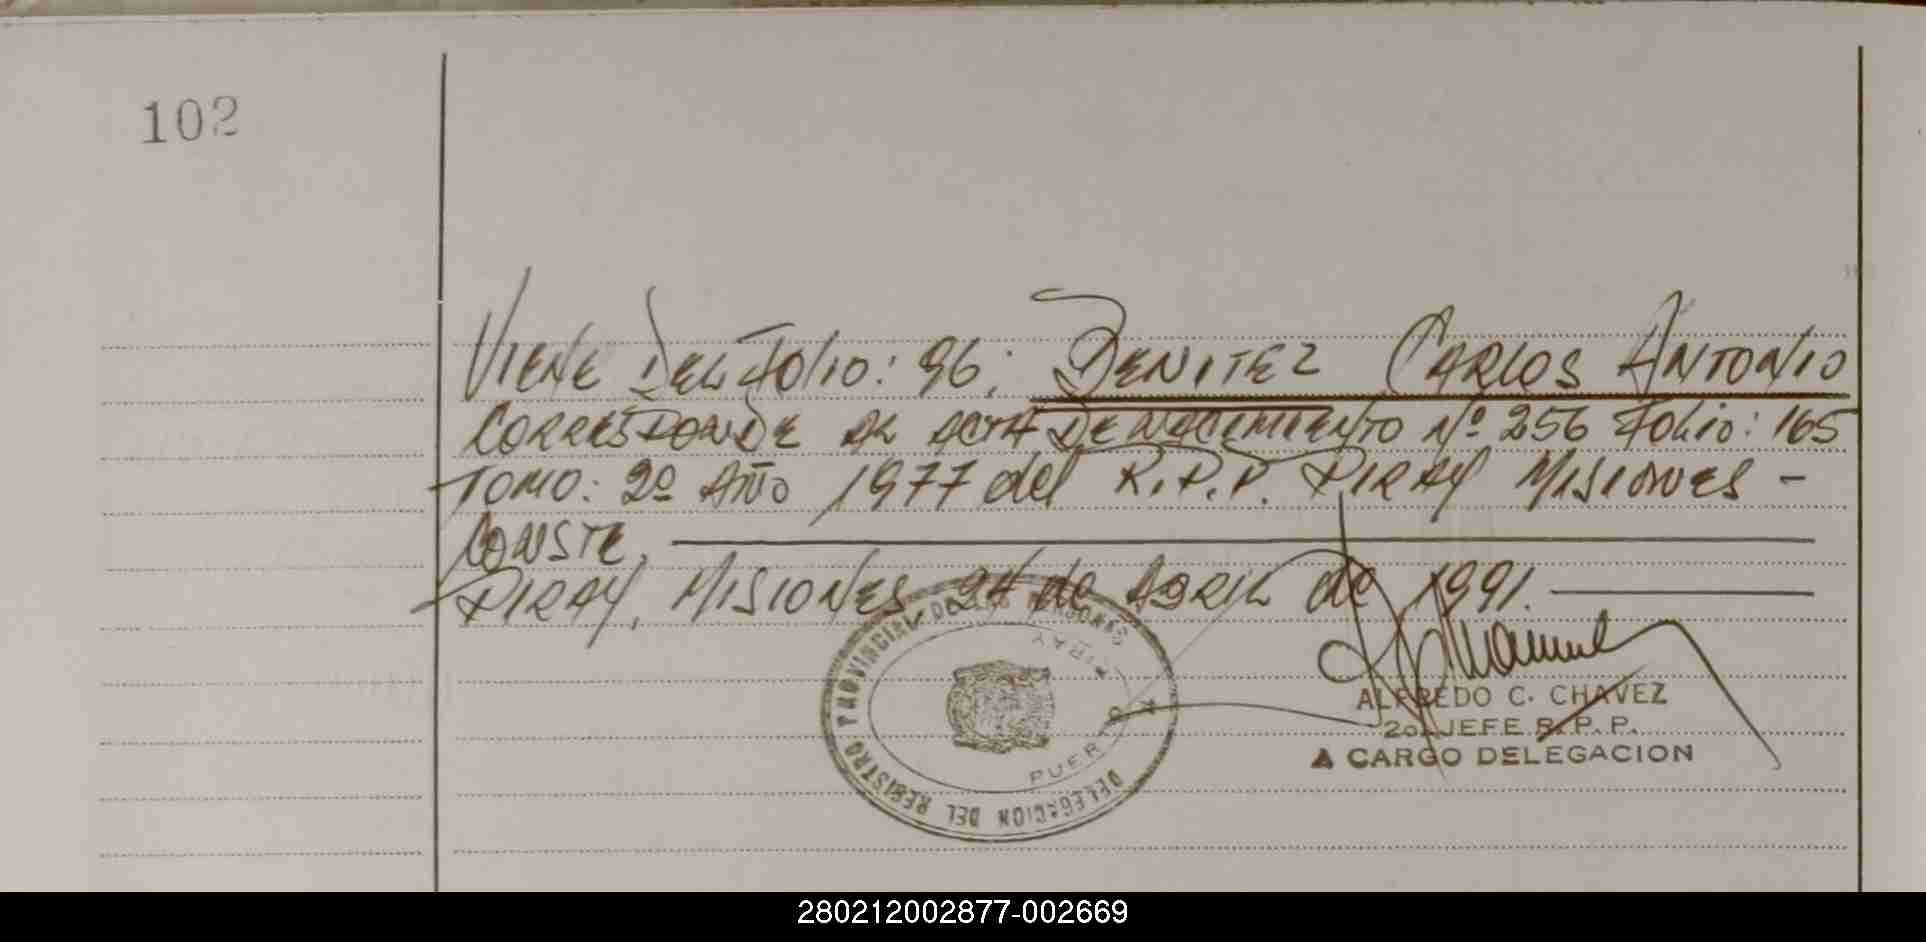 102
VIENE DEL FOLIO: 96; BENITEZ CARLOS ANTONIO
CORRESPONDE AL ACTA DE NACIMIENTO Nº 256 FOLIO: 165
TOMO: 2º AÑO 1977 del R.P.P. PIRAY MISIONES -
CONSTE.
PIRAY, MISIONES, 24 de ABRIL de 1991.
DELEGACION DEL REGISTRO PROVINCIAL DE LAS PERSONAS
PUERTO PIRAY
ALFREDO C. CHAVEZ
2o JEFE R.P.P.
A CARGO DELEGACION
280212002877-002669